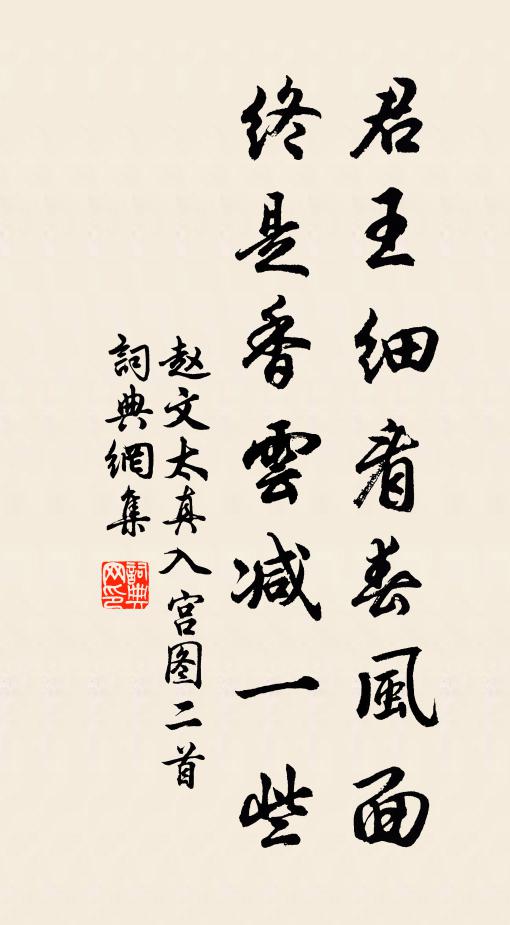 君王细看春風面
終是香雲減一些
赵文太真入宫图二首
詞典網集
詞典网印